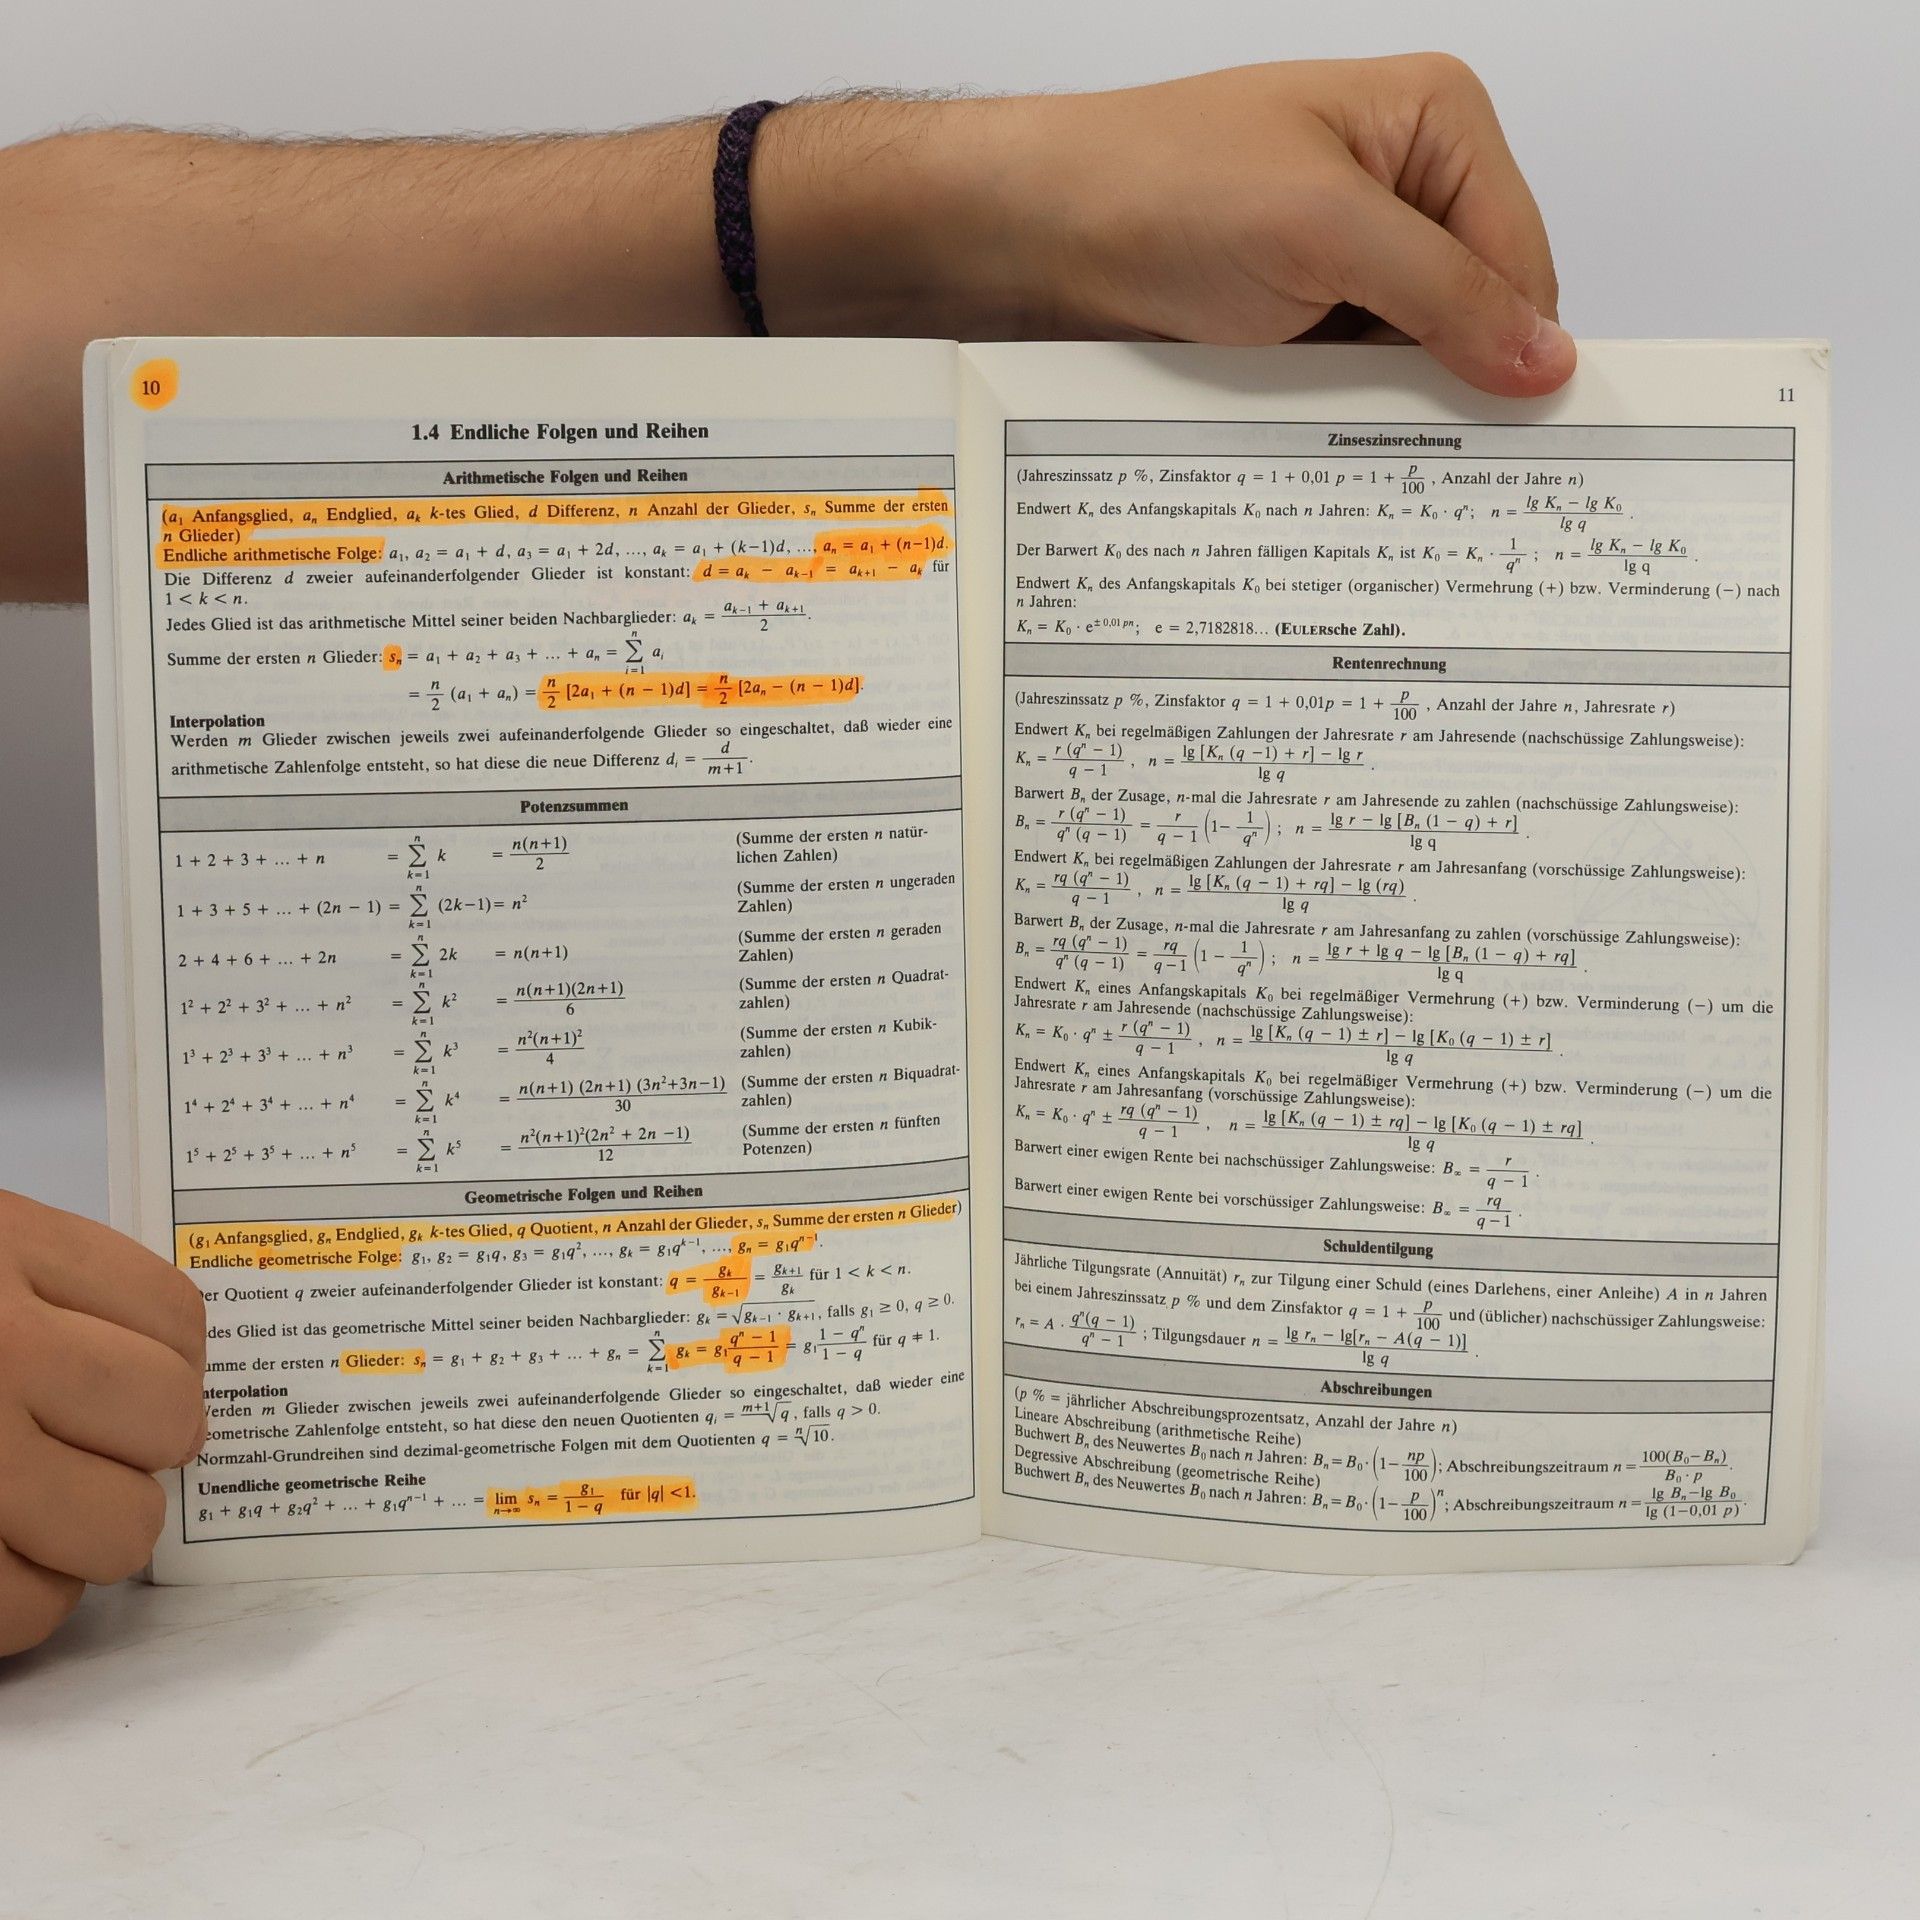 10
1.4 Endliche Folgen und Reihen
Arithmetische Folgen und Reihen
(a₁ Anfangsglied, aₙ Endglied, aₖ k-tes Glied, d Differenz, n Anzahl der Glieder, sₙ Summe der ersten
n Glieder)
Endliche arithmetische Folge: a₁, a₂ = a₁ + d, a₃ = a₁ + 2d, ..., aₖ = a₁ + (k−1)d, ..., aₙ = a₁ + (n−1)d.
Die Differenz d zweier aufeinanderfolgender Glieder ist konstant: d = aₖ − aₖ₋₁ = aₖ₊₁ − aₖ für
1 < k < n.
Jedes Glied ist das arithmetische Mittel seiner beiden Nachbarglieder: aₖ = (aₖ₋₁ + aₖ₊₁)/2.
Summe der ersten n Glieder: sₙ = a₁ + a₂ + a₃ + ... + aₙ = ∑_{i=1}^{n} aᵢ
= n/2 (a₁ + aₙ) = n/2 [2a₁ + (n − 1)d] = n/2 [2aₙ − (n − 1)d].
Interpolation
Werden m Glieder zwischen jeweils zwei aufeinanderfolgende Glieder so eingeschaltet, daß wieder eine
arithmetische Zahlenfolge entsteht, so hat diese die neue Differenz dᵢ = d/(m+1).
Potenzsummen
1 + 2 + 3 + ... + n = ∑_{k=1}^{n} k = n(n+1)/2 (Summe der ersten n natür-
lichen Zahlen)
1 + 3 + 5 + ... + (2n − 1) = ∑_{k=1}^{n} (2k−1) = n² (Summe der ersten n ungeraden
Zahlen)
2 + 4 + 6 + ... + 2n = ∑_{k=1}^{n} 2k = n(n+1) (Summe der ersten n geraden
Zahlen)
1² + 2² + 3² + ... + n² = ∑_{k=1}^{n} k² = n(n+1)(2n+1)/6 (Summe der ersten n Quadrat-
zahlen)
1³ + 2³ + 3³ + ... + n³ = ∑_{k=1}^{n} k³ = n²(n+1)²/4 (Summe der ersten n Kubik-
zahlen)
1⁴ + 2⁴ + 3⁴ + ... + n⁴ = ∑_{k=1}^{n} k⁴ = n(n+1) (2n+1) (3n²+3n−1)/30 (Summe der ersten n Biquadrat-
zahlen)
1⁵ + 2⁵ + 3⁵ + ... + n⁵ = ∑_{k=1}^{n} k⁵ = n²(n+1)²(2n² + 2n −1)/12 (Summe der ersten n fünften
Potenzen)
Geometrische Folgen und Reihen
(g₁ Anfangsglied, gₙ Endglied, gₖ k-tes Glied, q Quotient, n Anzahl der Glieder, sₙ Summe der ersten n Glieder)
Endliche geometrische Folge: g₁, g₂ = g₁q, g₃ = g₁q², ..., gₖ = g₁qᵏ⁻¹, ..., gₙ = g₁qⁿ⁻¹.
er Quotient q zweier aufeinanderfolgender Glieder ist konstant: q = gₖ/gₖ₋₁ = gₖ₊₁/gₖ für 1 < k < n.
des Glied ist das geometrische Mittel seiner beiden Nachbarglieder: gₖ = √(gₖ₋₁ · gₖ₊₁), falls g₁ ≥ 0, q ≥ 0.
mme der ersten n Glieder: sₙ = g₁ + g₂ + g₃ + ... + gₙ = ∑_{k=1}^{n} gₖ = g₁ (qⁿ − 1)/(q − 1) = g₁ (1 − qⁿ)/(1 − q) für q ≠ 1.
nterpolation
erden m Glieder zwischen jeweils zwei aufeinanderfolgende Glieder so eingeschaltet, daß wieder eine
eometrische Zahlenfolge entsteht, so hat diese den neuen Quotienten qᵢ = ᵐ⁺¹√q, falls q > 0.
Normzahl-Grundreihen sind dezimal-geometrische Folgen mit dem Quotienten q = ⁿ√10.
Unendliche geometrische Reihe
g₁ + g₁q + g₂q² + ... + g₁qⁿ⁻¹ + ... = lim_{n→∞} sₙ = g₁/(1 − q) für |q| <1.
11
Zinseszinsrechnung
(Jahreszinssatz p %, Zinsfaktor q = 1 + 0,01 p = 1 + p/100, Anzahl der Jahre n)
Endwert Kₙ des Anfangskapitals K₀ nach n Jahren: Kₙ = K₀ · qⁿ; n = (lg Kₙ − lg K₀)/lg q.
Der Barwert K₀ des nach n Jahren fälligen Kapitals Kₙ ist K₀ = Kₙ · 1/qⁿ; n = (lg Kₙ − lg K₀)/lg q.
Endwert Kₙ des Anfangskapitals K₀ bei stetiger (organischer) Vermehrung (+) bzw. Verminderung (−) nach
n Jahren:
Kₙ = K₀ · e^{± 0,01 pn}; e = 2,7182818... (EULERsche Zahl).
Rentenrechnung
(Jahreszinssatz p %, Zinsfaktor q = 1 + 0,01p = 1 + p/100, Anzahl der Jahre n, Jahresrate r)
Endwert Kₙ bei regelmäßigen Zahlungen der Jahresrate r am Jahresende (nachschüssige Zahlungsweise):
Kₙ = r (qⁿ − 1)/(q − 1), n = (lg [Kₙ (q −1) + r] − lg r)/lg q.
Barwert Bₙ der Zusage, n-mal die Jahresrate r am Jahresende zu zahlen (nachschüssige Zahlungsweise):
Bₙ = r (qⁿ − 1)/(qⁿ (q − 1)) = r/(q − 1) (1− 1/qⁿ); n = (lg r − lg [Bₙ (1 − q) + r])/lg q.
Endwert Kₙ bei regelmäßigen Zahlungen der Jahresrate r am Jahresanfang (vorschüssige Zahlungsweise):
Kₙ = rq (qⁿ − 1)/(q − 1), n = (lg [Kₙ (q − 1) + rq] − lg (rq))/lg q.
Barwert Bₙ der Zusage, n-mal die Jahresrate r am Jahresanfang zu zahlen (vorschüssige Zahlungsweise):
Bₙ = rq (qⁿ − 1)/(qⁿ (q − 1)) = rq/(q−1) (1 − 1/qⁿ); n = (lg r + lg q − lg [Bₙ (1 − q) + rq])/lg q.
Endwert Kₙ eines Anfangskapitals K₀ bei regelmäßiger Vermehrung (+) bzw. Verminderung (−) um die
Jahresrate r am Jahresende (nachschüssige Zahlungsweise):
Kₙ = K₀ · qⁿ ± r (qⁿ − 1)/(q − 1), n = (lg [Kₙ (q − 1) ± r] − lg [K₀ (q − 1) ± r])/lg q.
Endwert Kₙ eines Anfangskapitals K₀ bei regelmäßiger Vermehrung (+) bzw. Verminderung (−) um die
Jahresrate r am Jahresanfang (vorschüssige Zahlungsweise):
Kₙ = K₀ · qⁿ ± rq (qⁿ − 1)/(q − 1), n = (lg [Kₙ (q − 1) ± rq] − lg [K₀ (q − 1) ± rq])/lg q.
Barwert einer ewigen Rente bei nachschüssiger Zahlungsweise: B∞ = r/(q − 1).
Barwert einer ewigen Rente bei vorschüssiger Zahlungsweise: B∞ = rq/(q−1).
Schuldentilgung
Jährliche Tilgungsrate (Annuität) rₙ zur Tilgung einer Schuld (eines Darlehens, einer Anleihe) A in n Jahren
bei einem Jahreszinssatz p % und dem Zinsfaktor q = 1 + p/100 und (üblicher) nachschüssiger Zahlungsweise:
rₙ = A · qⁿ(q − 1)/(qⁿ − 1); Tilgungsdauer n = (lg rₙ − lg[rₙ − A(q − 1)])/lg q.
Abschreibungen
(p % = jährlicher Abschreibungsprozentsatz, Anzahl der Jahre n)
Lineare Abschreibung (arithmetische Reihe)
Buchwert Bₙ des Neuwertes B₀ nach n Jahren: Bₙ = B₀ · (1− np/100); Abschreibungszeitraum n = 100(B₀−Bₙ)/(B₀ · p).
Degressive Abschreibung (geometrische Reihe)
Buchwert Bₙ des Neuwertes B₀ nach n Jahren: Bₙ = B₀ · (1− p/100)ⁿ; Abschreibungszeitraum n = (lg Bₙ−lg B₀)/(lg (1−0,01 p)).